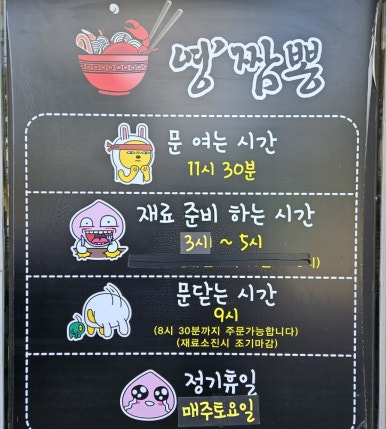 명'짬뽕
문 여는 시간
11시 30분
재료 준비 하는 시간
3시 ~ 5시
문닫는 시간
9시
(8시 30분까지 주문가능합니다)
(재료소진시 조기마감)
정기휴일
매주토요일